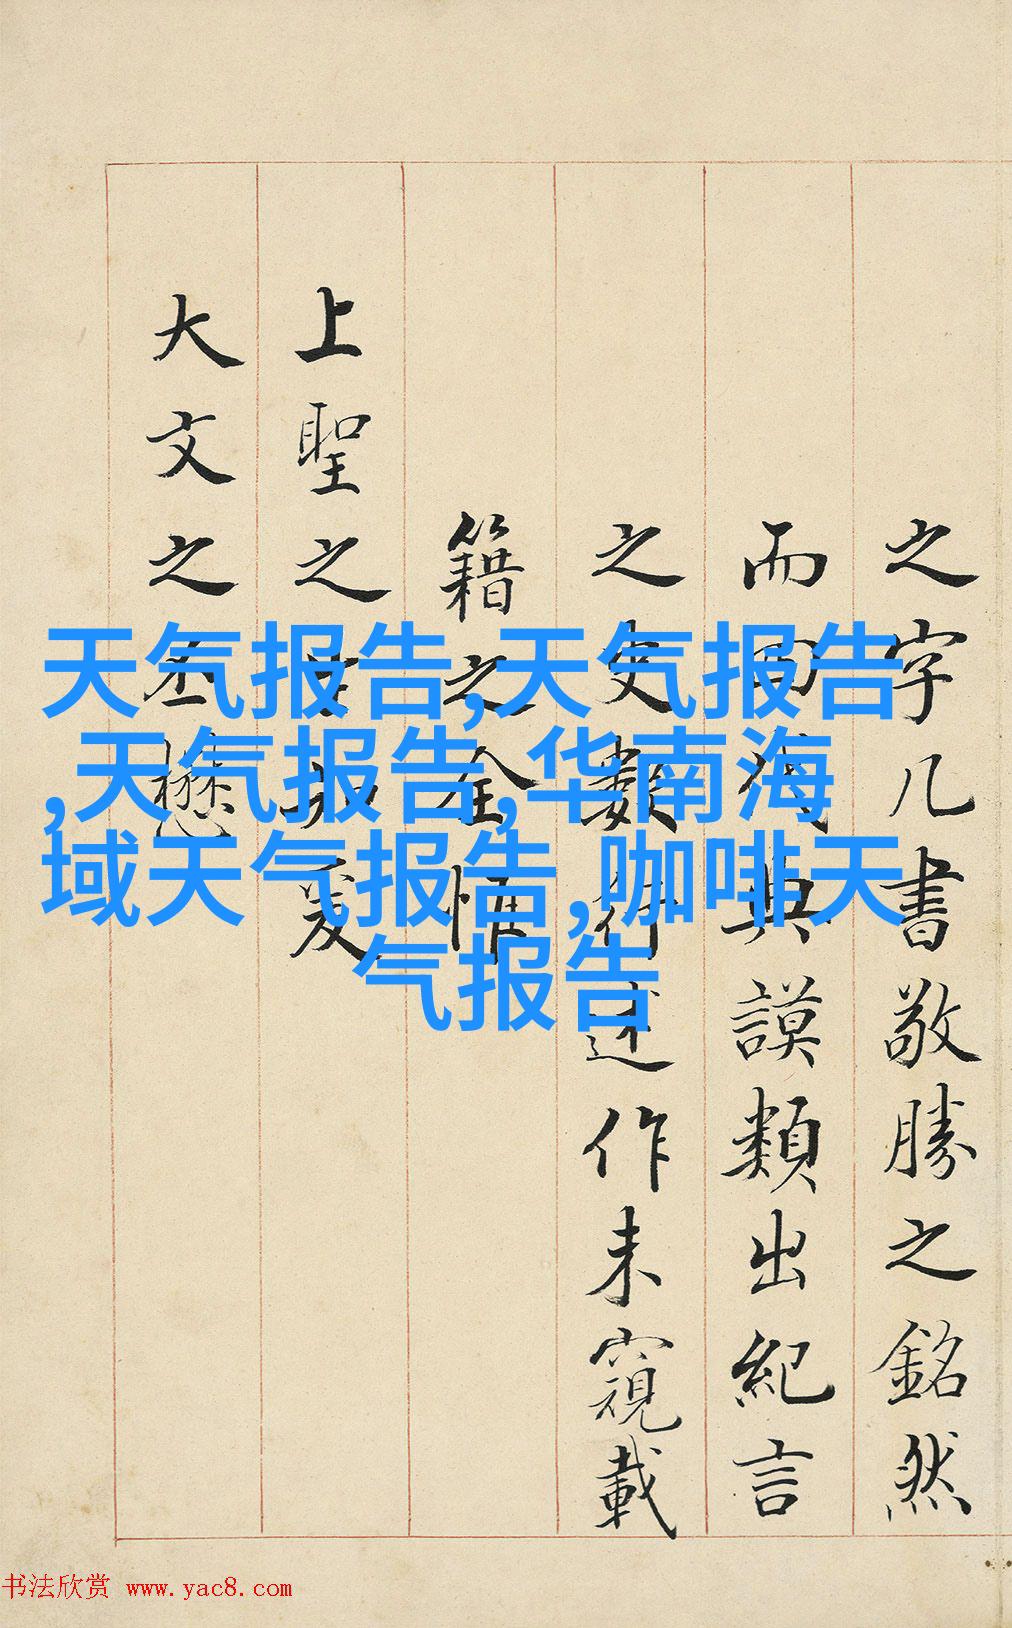 之字几書敬勝之銘然
而典謨類出紀言
之史數行述作未窺載
籍之全
上聖之夏
大文之丕懋
天气报告,天气报告
,天气报告,华南海
域天气报告,咖啡天
气报告
书法欣赏 www.yac8.com